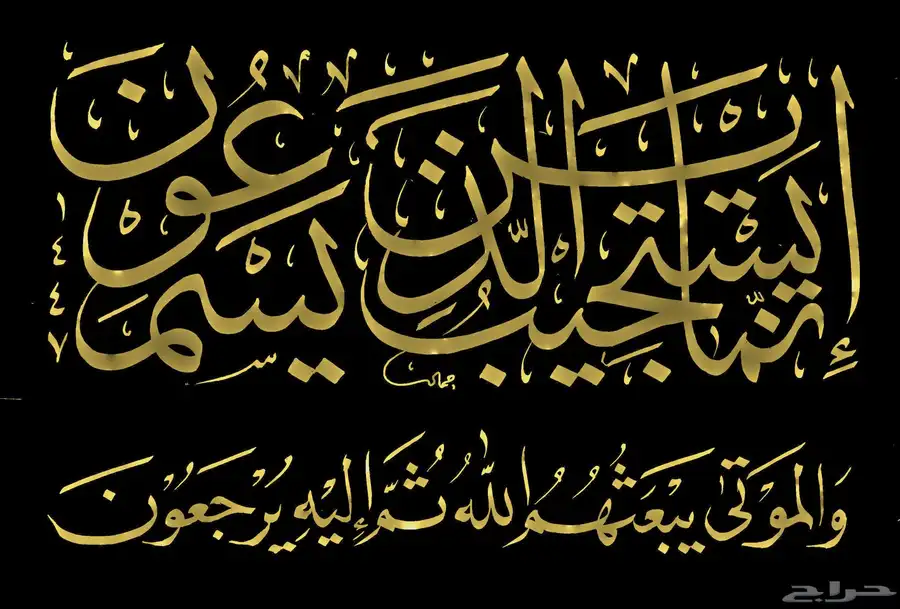 إِنَّمَا يَسْتَجِيبُ الَّذِينَ يَسْمَعُونَ
١٤٤٧
وَالْمَوْتَى يَبْعَثُهُمُ اللَّهُ ثُمَّ إِلَيْهِ يُرْجَعُونَ
حراج